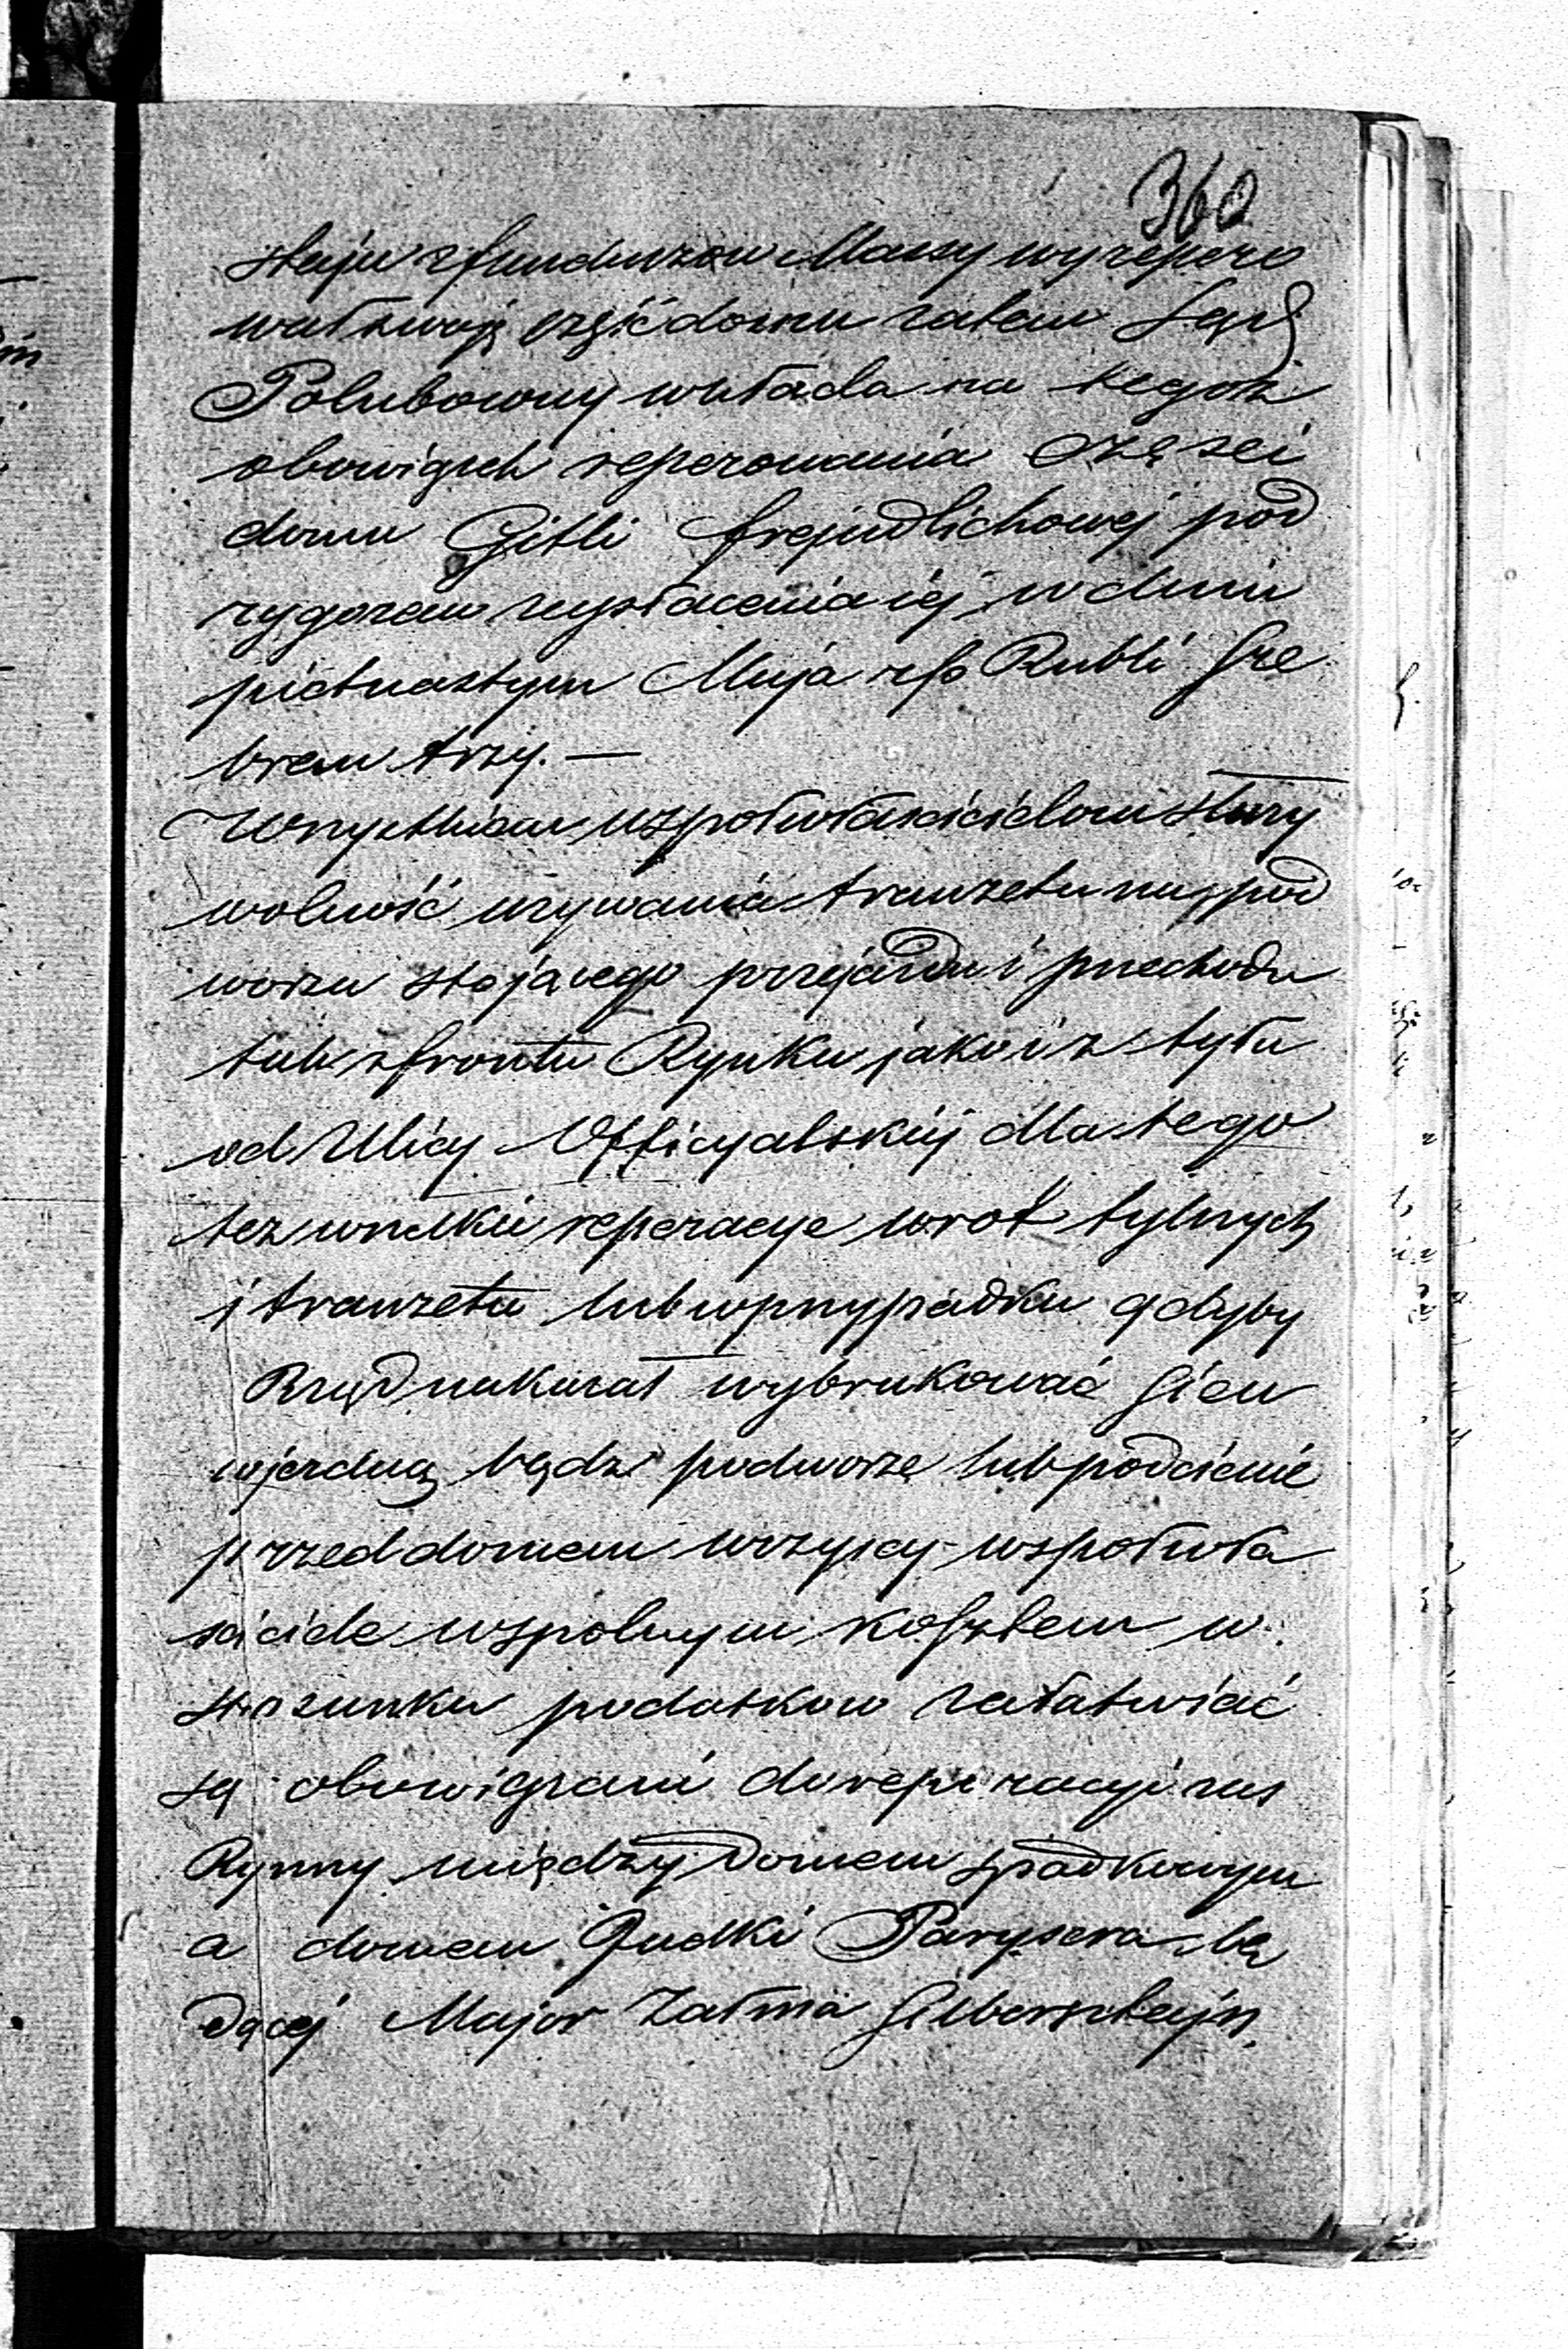 360
z funduszow Massy wyrepero
wał swoję część domu zatem Sąd
Polubowny wkłada na tegoż
obowiązek reperowania części
domu Gitli Frejudlichowej pod
rygorem wypłacenia iej w dniu
pietnastym Maja rb Rubli Sre
brem trzy. —
Wszystkiem wspołwłaścicielom służy
wolność używania tranzetu na pod
worzu stojącego przejazdu i przechodu
tak z frontu Rynku jako i z tyłu
od Ulicy Officyalskiej dla tego
też wszelkie reperacye wrot tylnych
i tranzetu lub w przypadku gdyby
Rząd nakazał wybrukować Sień
wjezdną bądź podworze lub podcienie
przed domem wszyscy wspołwła
ściciele wspolnym kosztem w
stosunku podatkow załatwiać
są obowiązani do reperacyi zas
Rynny między Domem spadkowym
a domem Judki Parysera bę
dącej Major Załma Silbersztejn,